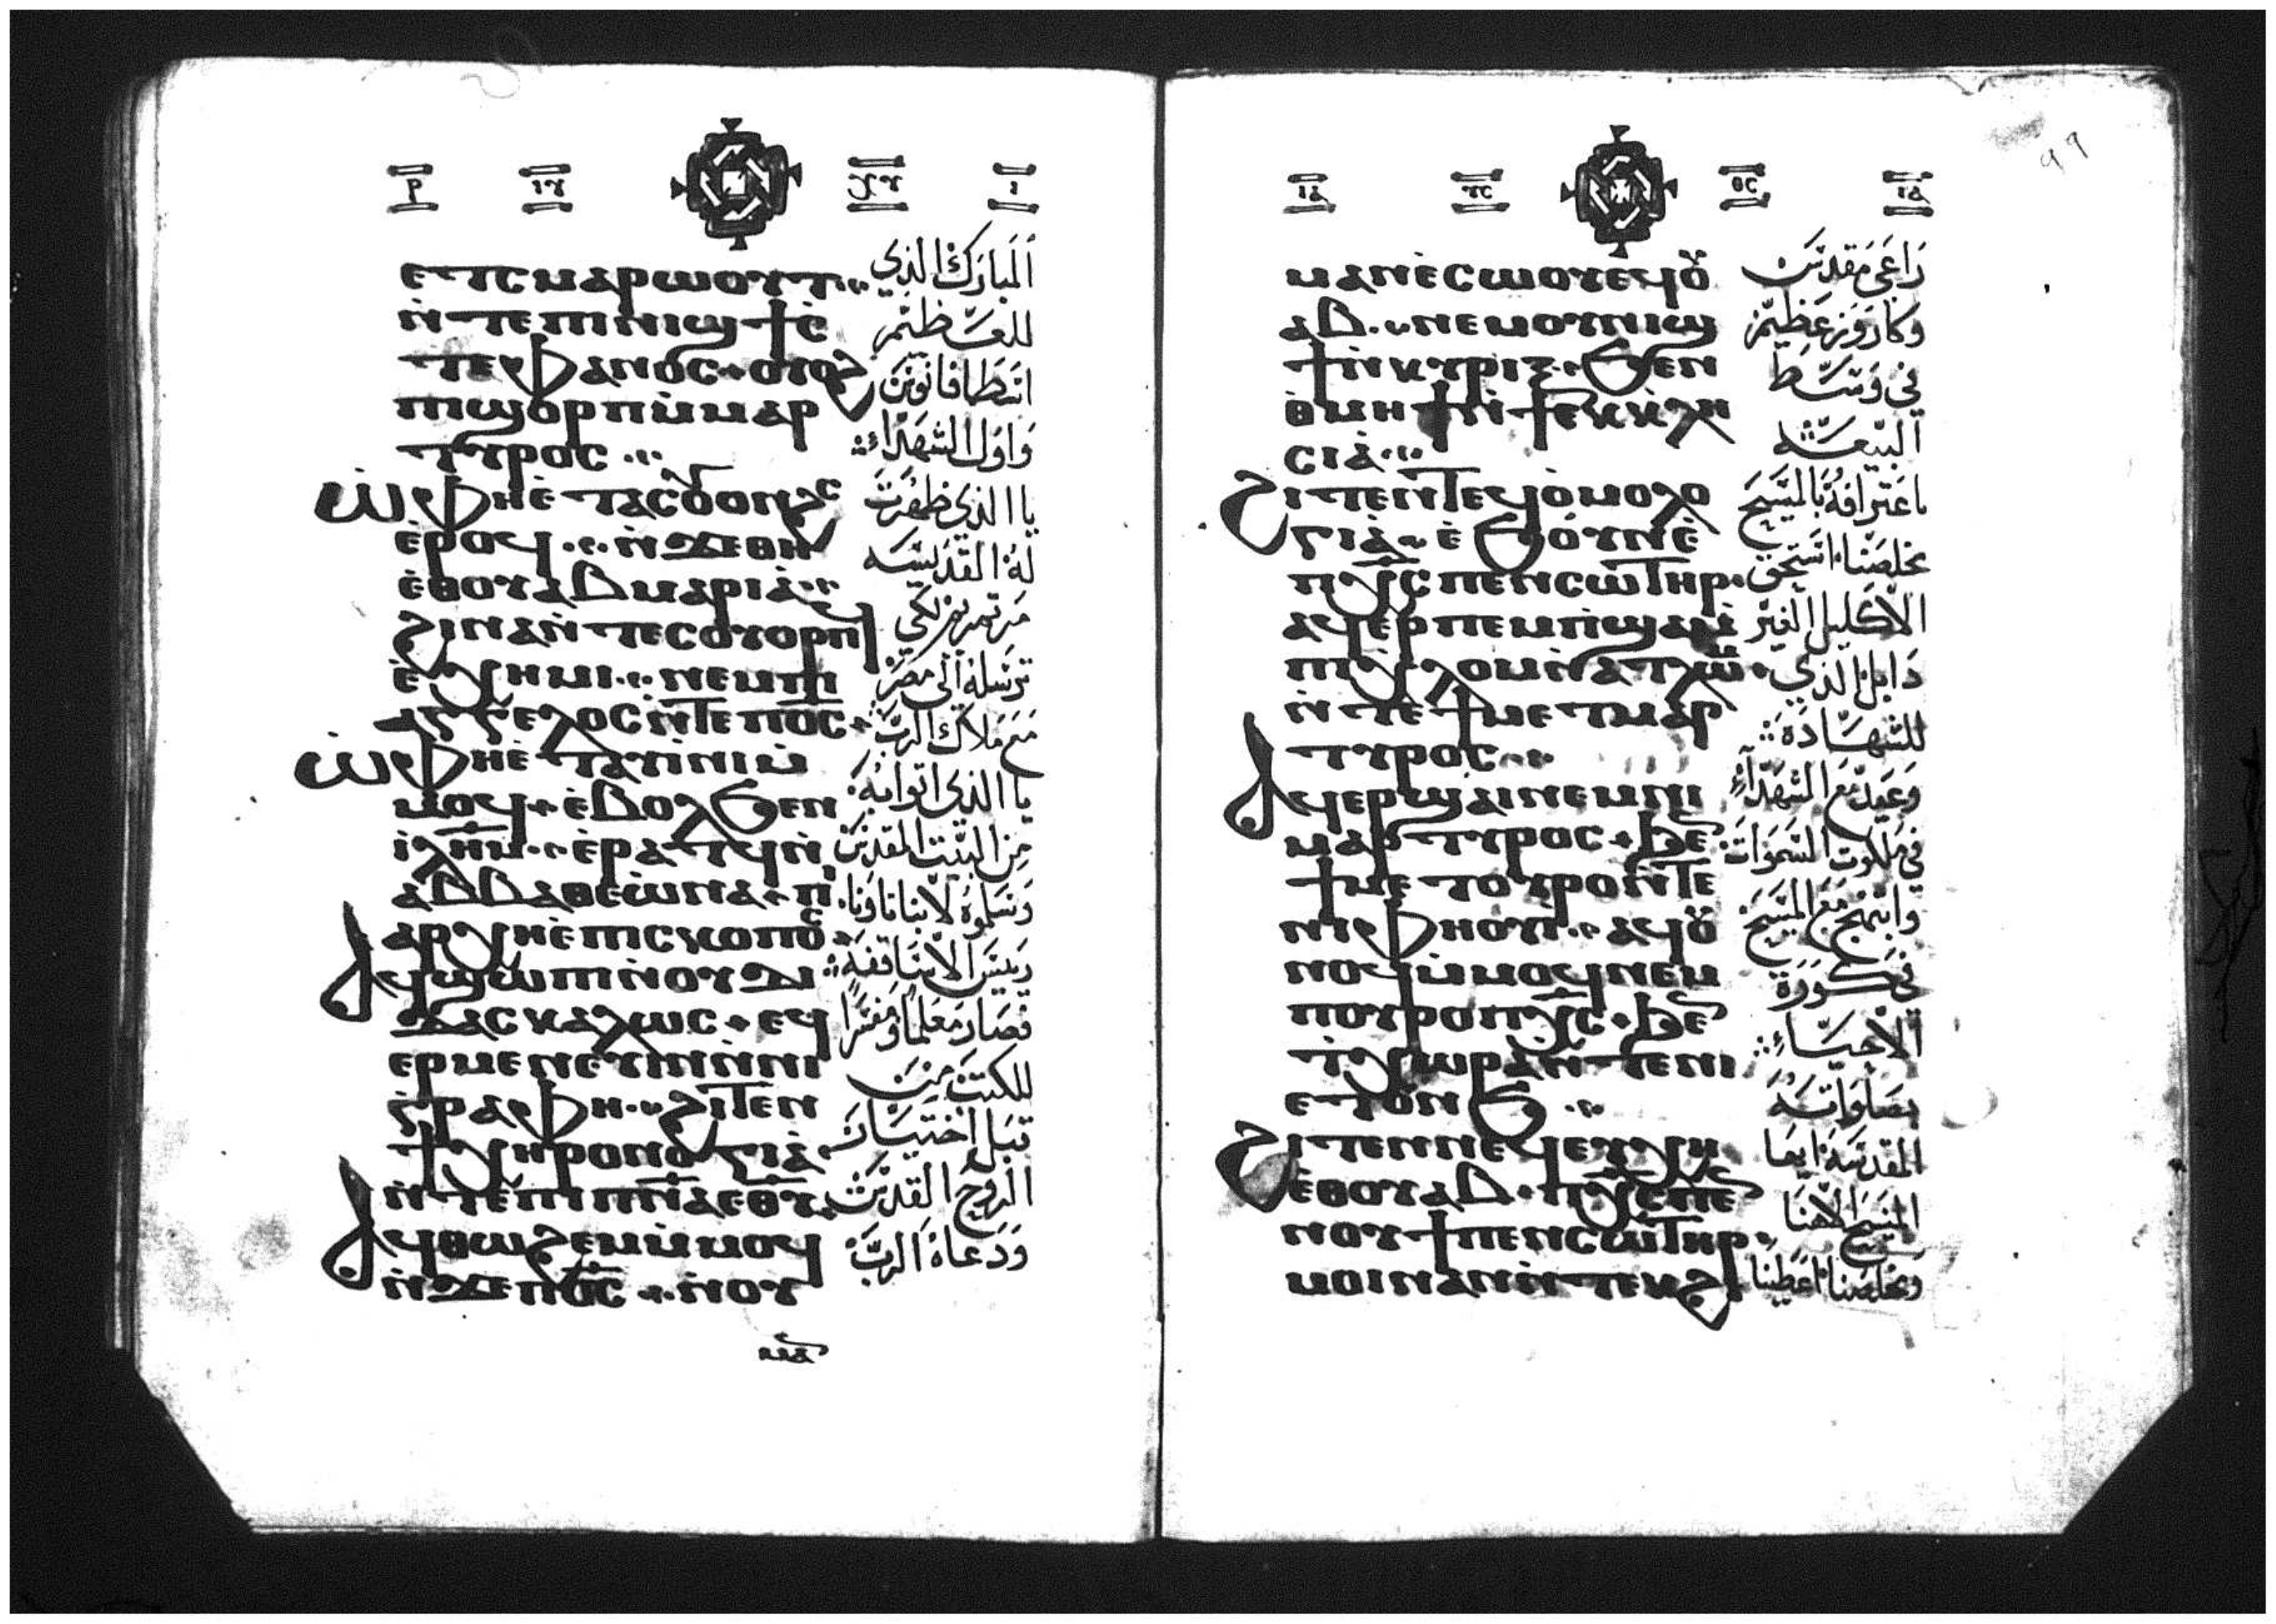 ⲣ ⲓⲩ ⲭⲩ ⲓ
ⲉⲧⲥⲙⲁⲣⲱⲟⲩⲧ
ⲛ̀ⲧⲉⲡⲓⲛⲓϣϯⲥ̀
ⲧⲉⲫⲁⲛⲟⲥ ⲟⲩⲟϩ
ⲡⲓϣⲟⲣⲡⲙ̀ⲙⲁⲣ
ⲧⲩⲣⲟⲥ
ⲱ̀ⲫⲏⲉ̀ⲧⲁⲥϭⲟⲛϩⲥ
ⲉ̀ⲣⲟϥ ⲛ̀ϫⲉⲑⲏ
ⲉ̀ⲑⲟⲩⲁⲃⲙⲁⲣⲓⲁ̀
ϩⲓⲛⲁⲛ̀ⲧⲉⲥⲟⲩⲟⲣⲡϥ
ⲉ̀ⲭⲏⲙⲓ ⲛⲉⲙⲡⲓ
ⲁⲅⲅⲉⲗⲟⲥⲛ̀ⲧⲉⲡⲟ̅ⲥ̅
ⲱ̀ⲫⲏⲉ̀ⲧⲁⲩⲓ̀ⲛⲓⲙ̀
ⲙⲟϥ ⲉ̀ⲃⲟⲗϧⲉⲛ
ⲓ̀ⲗ̅ⲏ̅ⲙ̅ ⲉ̀ⲣⲁⲧϥⲛ̀
ⲁⲃⲃⲁⲑⲉⲱ̀ⲛⲁ ⲡⲓ
ⲁⲣⲭⲏⲉ̀ⲡⲓⲥⲕⲟⲡⲟⲥ
ⲁϥϣⲱⲡⲓⲛ̀ⲟⲩⲇⲓ
ⲇⲁⲥⲕⲁⲗⲱⲥ ⲉϥ
ⲉⲣⲙⲉⲛⲉⲩⲓⲛⲛ̀ⲛⲓ
ⲅ̀ⲣⲁⲫⲏ ϩⲓⲧⲉⲛ
ϯⲭⲏⲣⲟⲛⲟⲅⲓⲁ̀
ⲛ̀ⲧⲉⲡⲓⲡ̅ⲛ̅ⲁ̅ⲉⲑⲩ
ⲁϥⲑⲱϩⲉⲙⲙ̀ⲙⲟϥ
ⲛ̀ϫⲉⲡⲟ̅ⲥ̅ ⲛ̀ⲟⲩ
ⲙⲁ
المبارك الذي
للعظيم
اسطافانوس
واول الشهداء
يا الذي ظفرت
له القديسه
مريم لكي
ترسله الى مصر
مع ملاك الرب
يا الذي اتوا به
من البيت المقدس
وسلموه لابينا تاونا
ريس الاساقفه
فصار معلما ومفسرا
للكتب من
قبل اختيار
الروح القدس
ودعاه الرب
ⲓⲁ ⲩⲥ ⲑⲥ ⲓⲁ
ⲙⲁⲛⲉ̀ⲥⲱⲟⲩⲉϥⲟⲩ
ⲁⲃ ⲛⲉⲙⲟⲩⲛⲓϣ
ϯⲛ̀ⲕⲩⲣⲓⲝ ϧⲉⲛ
ⲑ̀ⲙⲏϯⲛ̀ϯⲉⲕⲕⲗⲏ
ⲥⲓⲁ̀
ϩⲓⲧⲉⲛⲧⲉϥⲟ̀ⲙⲟⲗⲟ
ⲅⲓⲁ̀ ⲉ̀ϧⲟⲩⲛⲉ̀
ⲡⲭ̅ⲥ̅ⲡⲉⲛⲥⲱⲧⲏⲣ
ⲁϥⲉⲣⲡⲉⲙⲡ̀ϣⲁⲙ̀
ⲡⲓⲭ̀ⲗⲟⲙⲛ̀ⲁⲧⲗⲱⲙ
ⲛ̀ⲧⲉϯⲙⲉⲧⲙⲁⲣ
ⲧⲩⲣⲟⲥ
ⲁϥⲉⲣϣⲁⲓⲛⲉⲙⲛⲓ
ⲙⲁⲣⲧⲩⲣⲟⲥ ϧⲉⲛ
ϯⲙⲉⲧⲟⲩⲣⲟⲛ̀ⲧⲉ
ⲛⲓⲫⲏⲟⲩⲓ̀ ⲁϥⲟⲩ
ⲛⲟϥⲙ̀ⲙⲟϥⲛⲉⲙ
ⲡⲟⲩⲣⲟⲡⲭ̅ⲥ̅ ϧⲉⲛ
ⲧ̀ⲭⲱⲣⲁⲛ̀ⲧⲉⲛⲓ
ⲉⲧⲟⲛϧ
ϩⲓⲧⲉⲛⲛⲉϥⲉⲩⲭⲏ
ⲉ̀ⲑⲟⲩⲁⲃ ⲡⲭ̅ⲥ̅ⲡⲉ
ⲛⲟⲩϯⲡⲉⲛⲥⲱⲧⲏⲣ
ⲙⲟⲓⲛⲁⲛⲛ̀ⲧⲉⲕϩⲓ
٩٩
راعى مقدس
وكاروز عظيم
في وسط
البيعه
باعترافه بالمسيح
مخلصنا استحق
الاكليل الغير
دابل الذي
للشهاده
وعيد مع الشهداء
في ملكوت السموات
وابتهج مع المسيح
في كورة
الاحياء
بصلواته
المقدسه ايها
المسيح الاهنا
ومخلصنا اعطينا